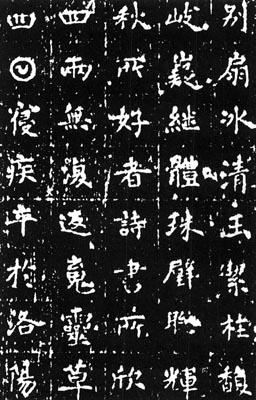 別扇冰清玉潔桂馥
岐嶷繼體珠璧聯輝
秋所好者詩書所欣
兩無復返魂靈草
四𡆠寢疾卒於洛陽